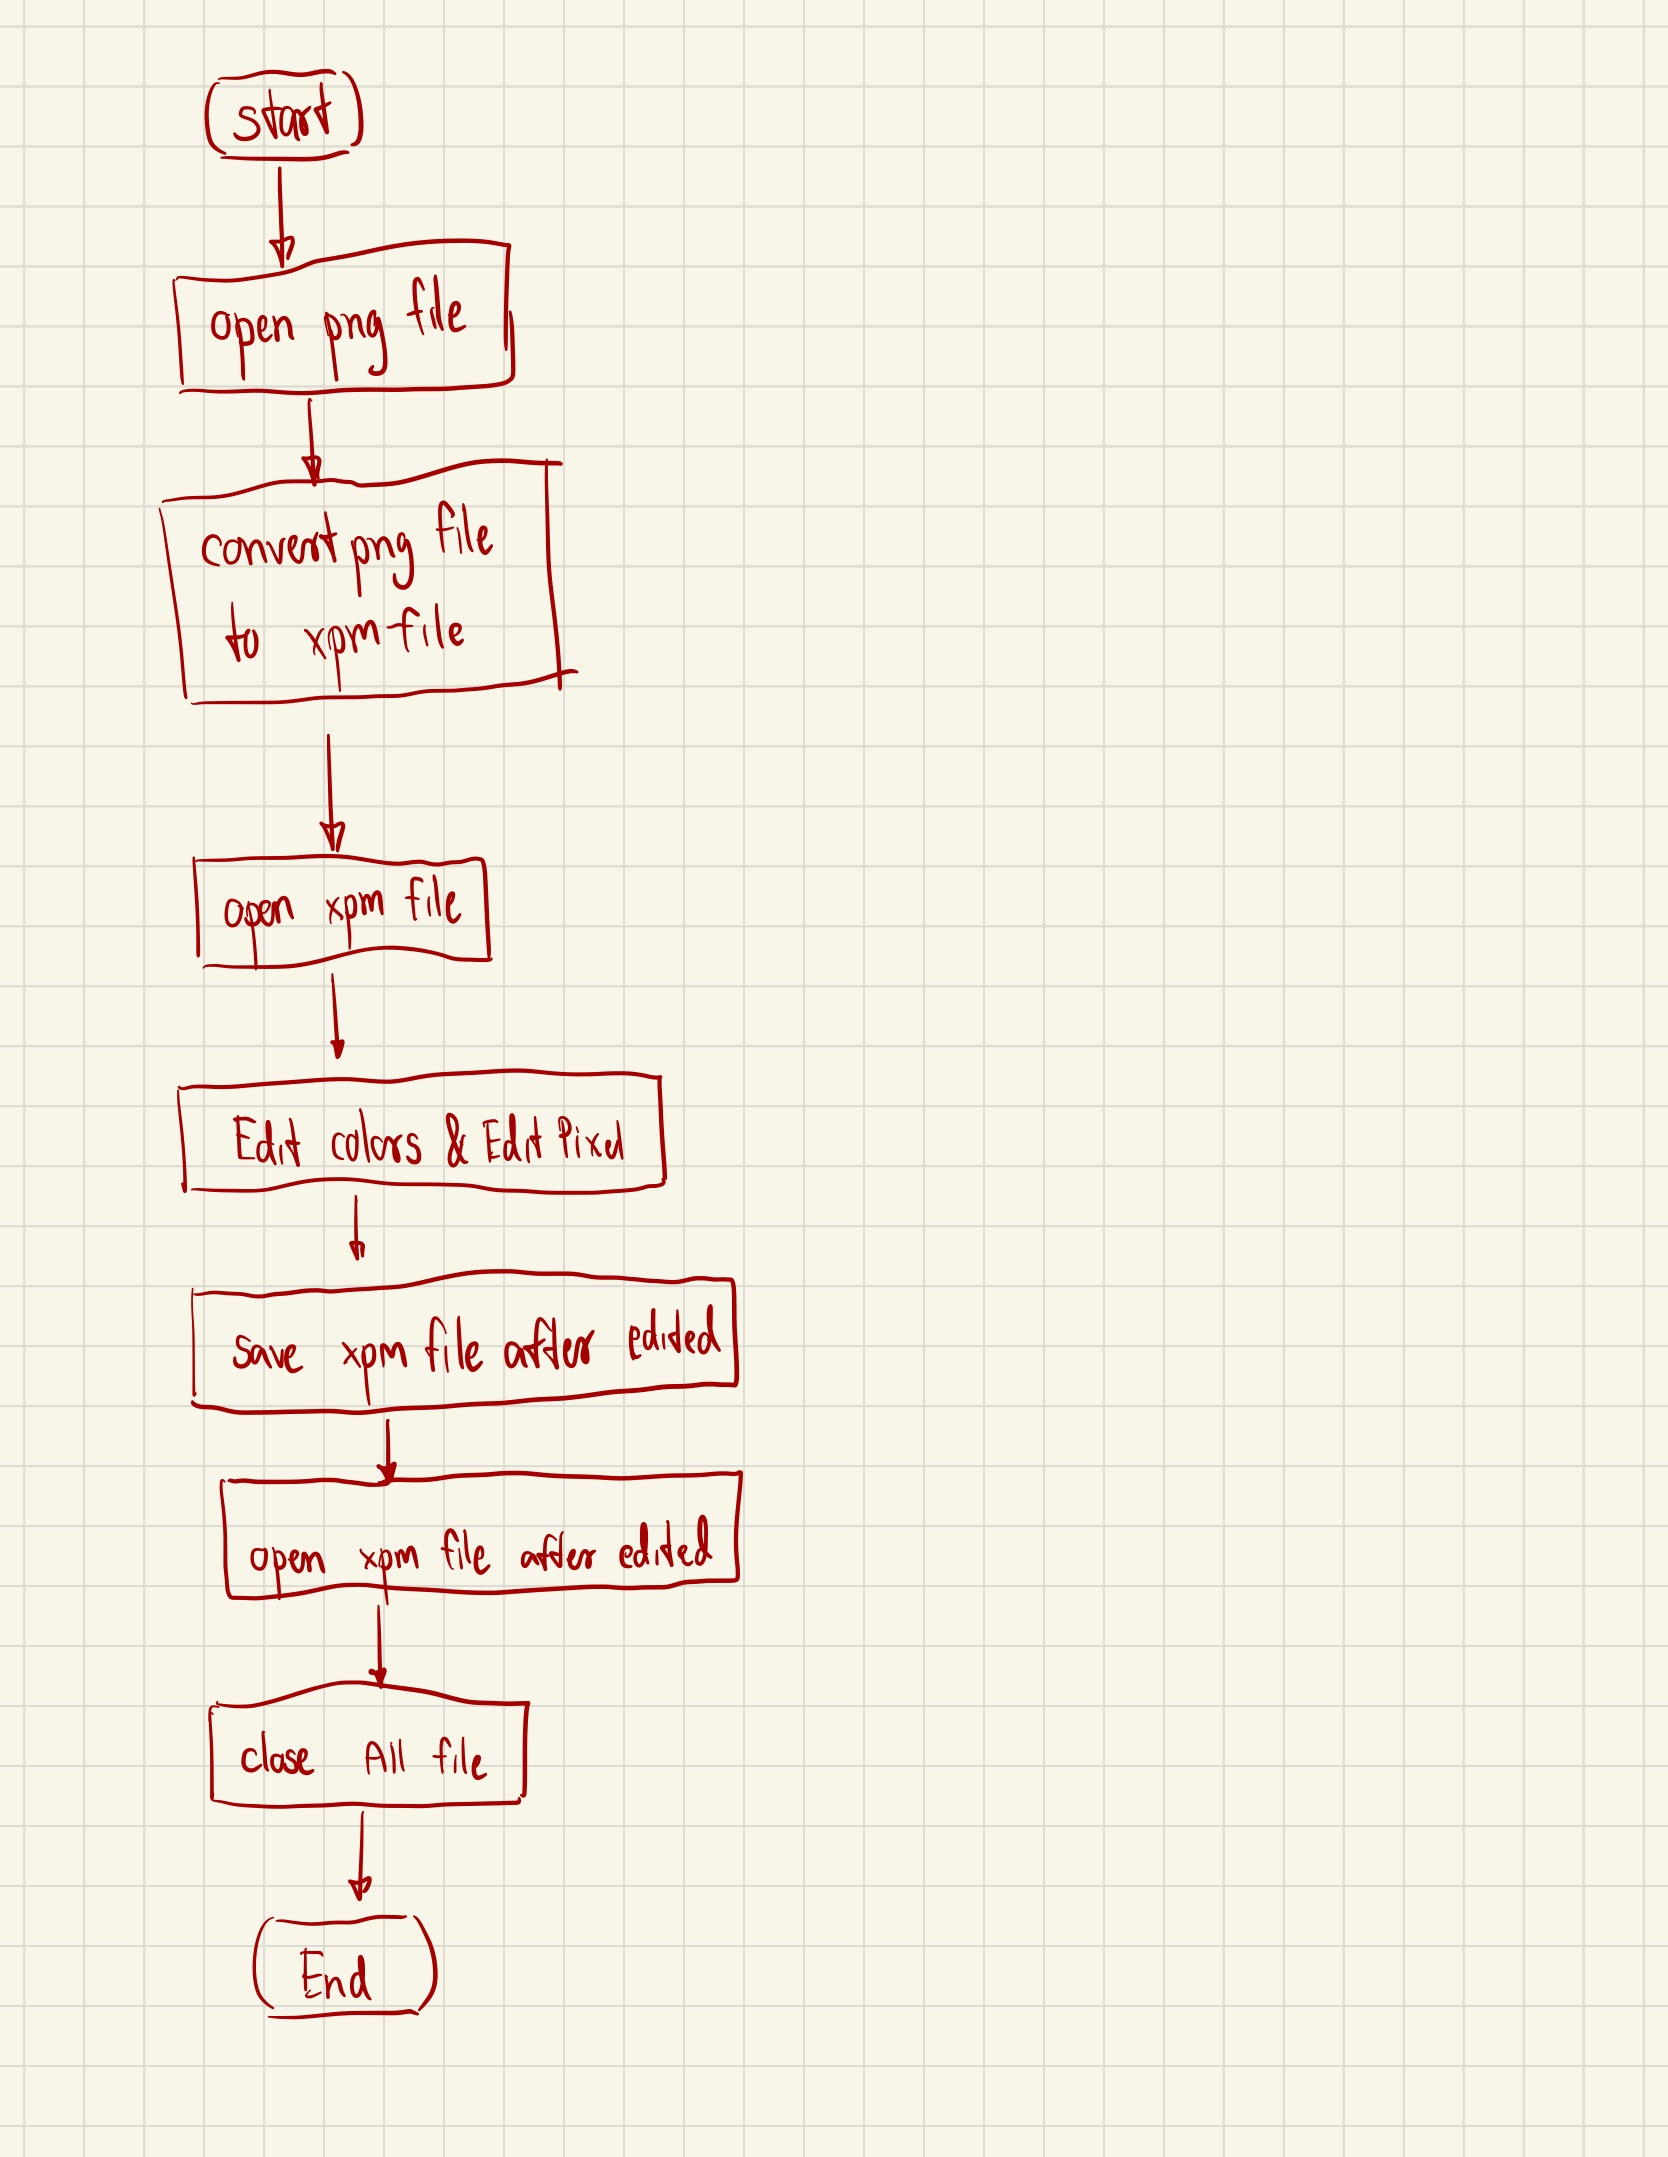 start
open png file
convert png file
to xpm file
open xpm file
Edit colors & Edit Pixel
save xpm file after edited
open xpm file after edited
close All file
End